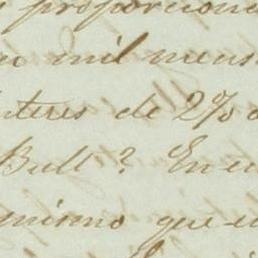 proporciona
mil mens
interes de 2%
Bull? En
mismo que